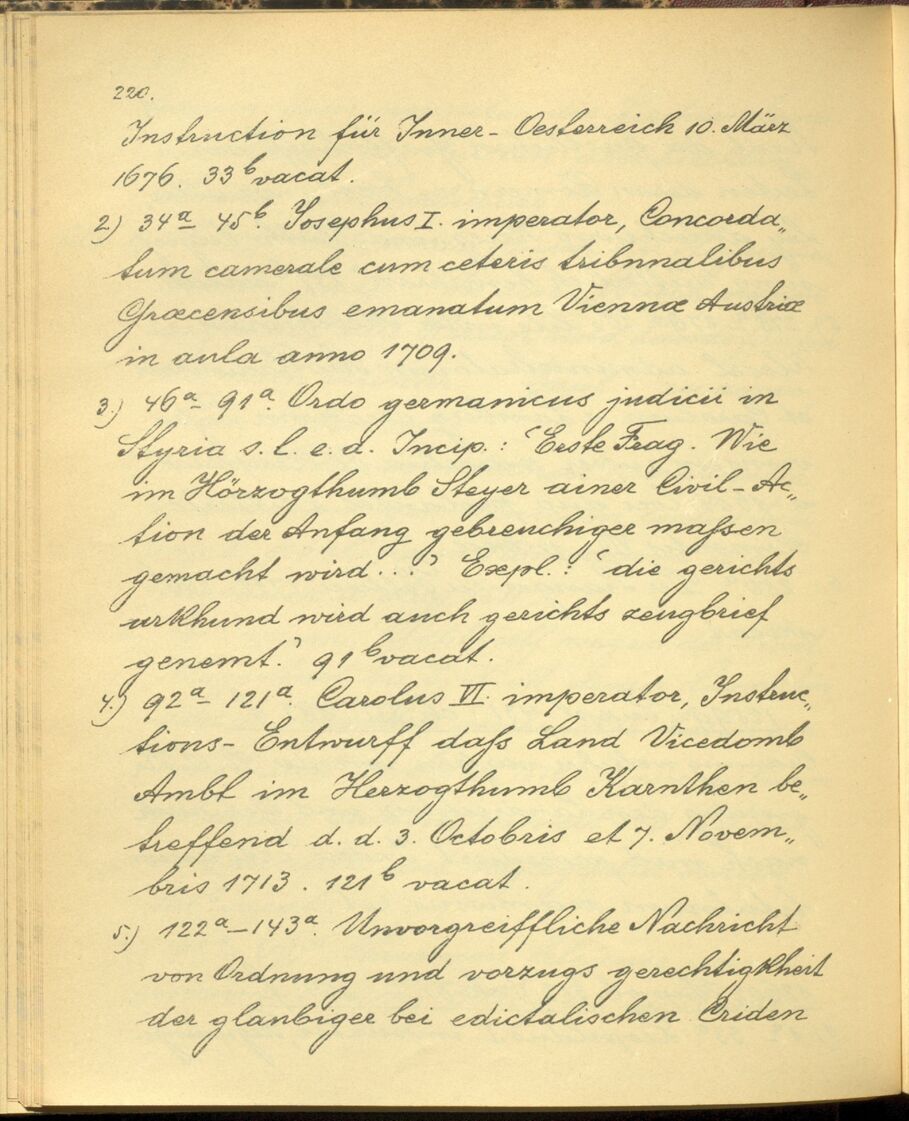 220.
Instruction für Inner-Oesterreich 10. März
1676. 33b vacat.
2) 34a-45b. Josephus I. imperator, Concorda„
tum camerale cum ceteris tribunalibus
Græcensibus emanatum Viennæ Austriæ
in aula anno 1709.
3.) 46a-91a. Ordo germanicus judicii in
Styria s. l. e. d. Incip.: 'Erste Frag. Wie
im Hörzogthumb Steyer ainer Civil-Ac„
tion der Anfang gebreuchiger maſsen
gemacht wird...' Expl.: 'die gerichts
urkhund wird auch gerichts zeugbrief
genemt.' 91b vacat.
4.) 92a-121a. Carolus VI. imperator, Instruc„
tions-Entwurff daſs Land Vicedomb
Ambt im Herzogthumb Karnthen be„
treffend d. d. 3. Octobris et 7. Novem„
bris 1713. 121b vacat.
5.) 122a-143a. Unvorgreiffliche Nachricht
von Ordnung und vorzugs gerechtigkheit
der glaubiger bei edictalischen Criden